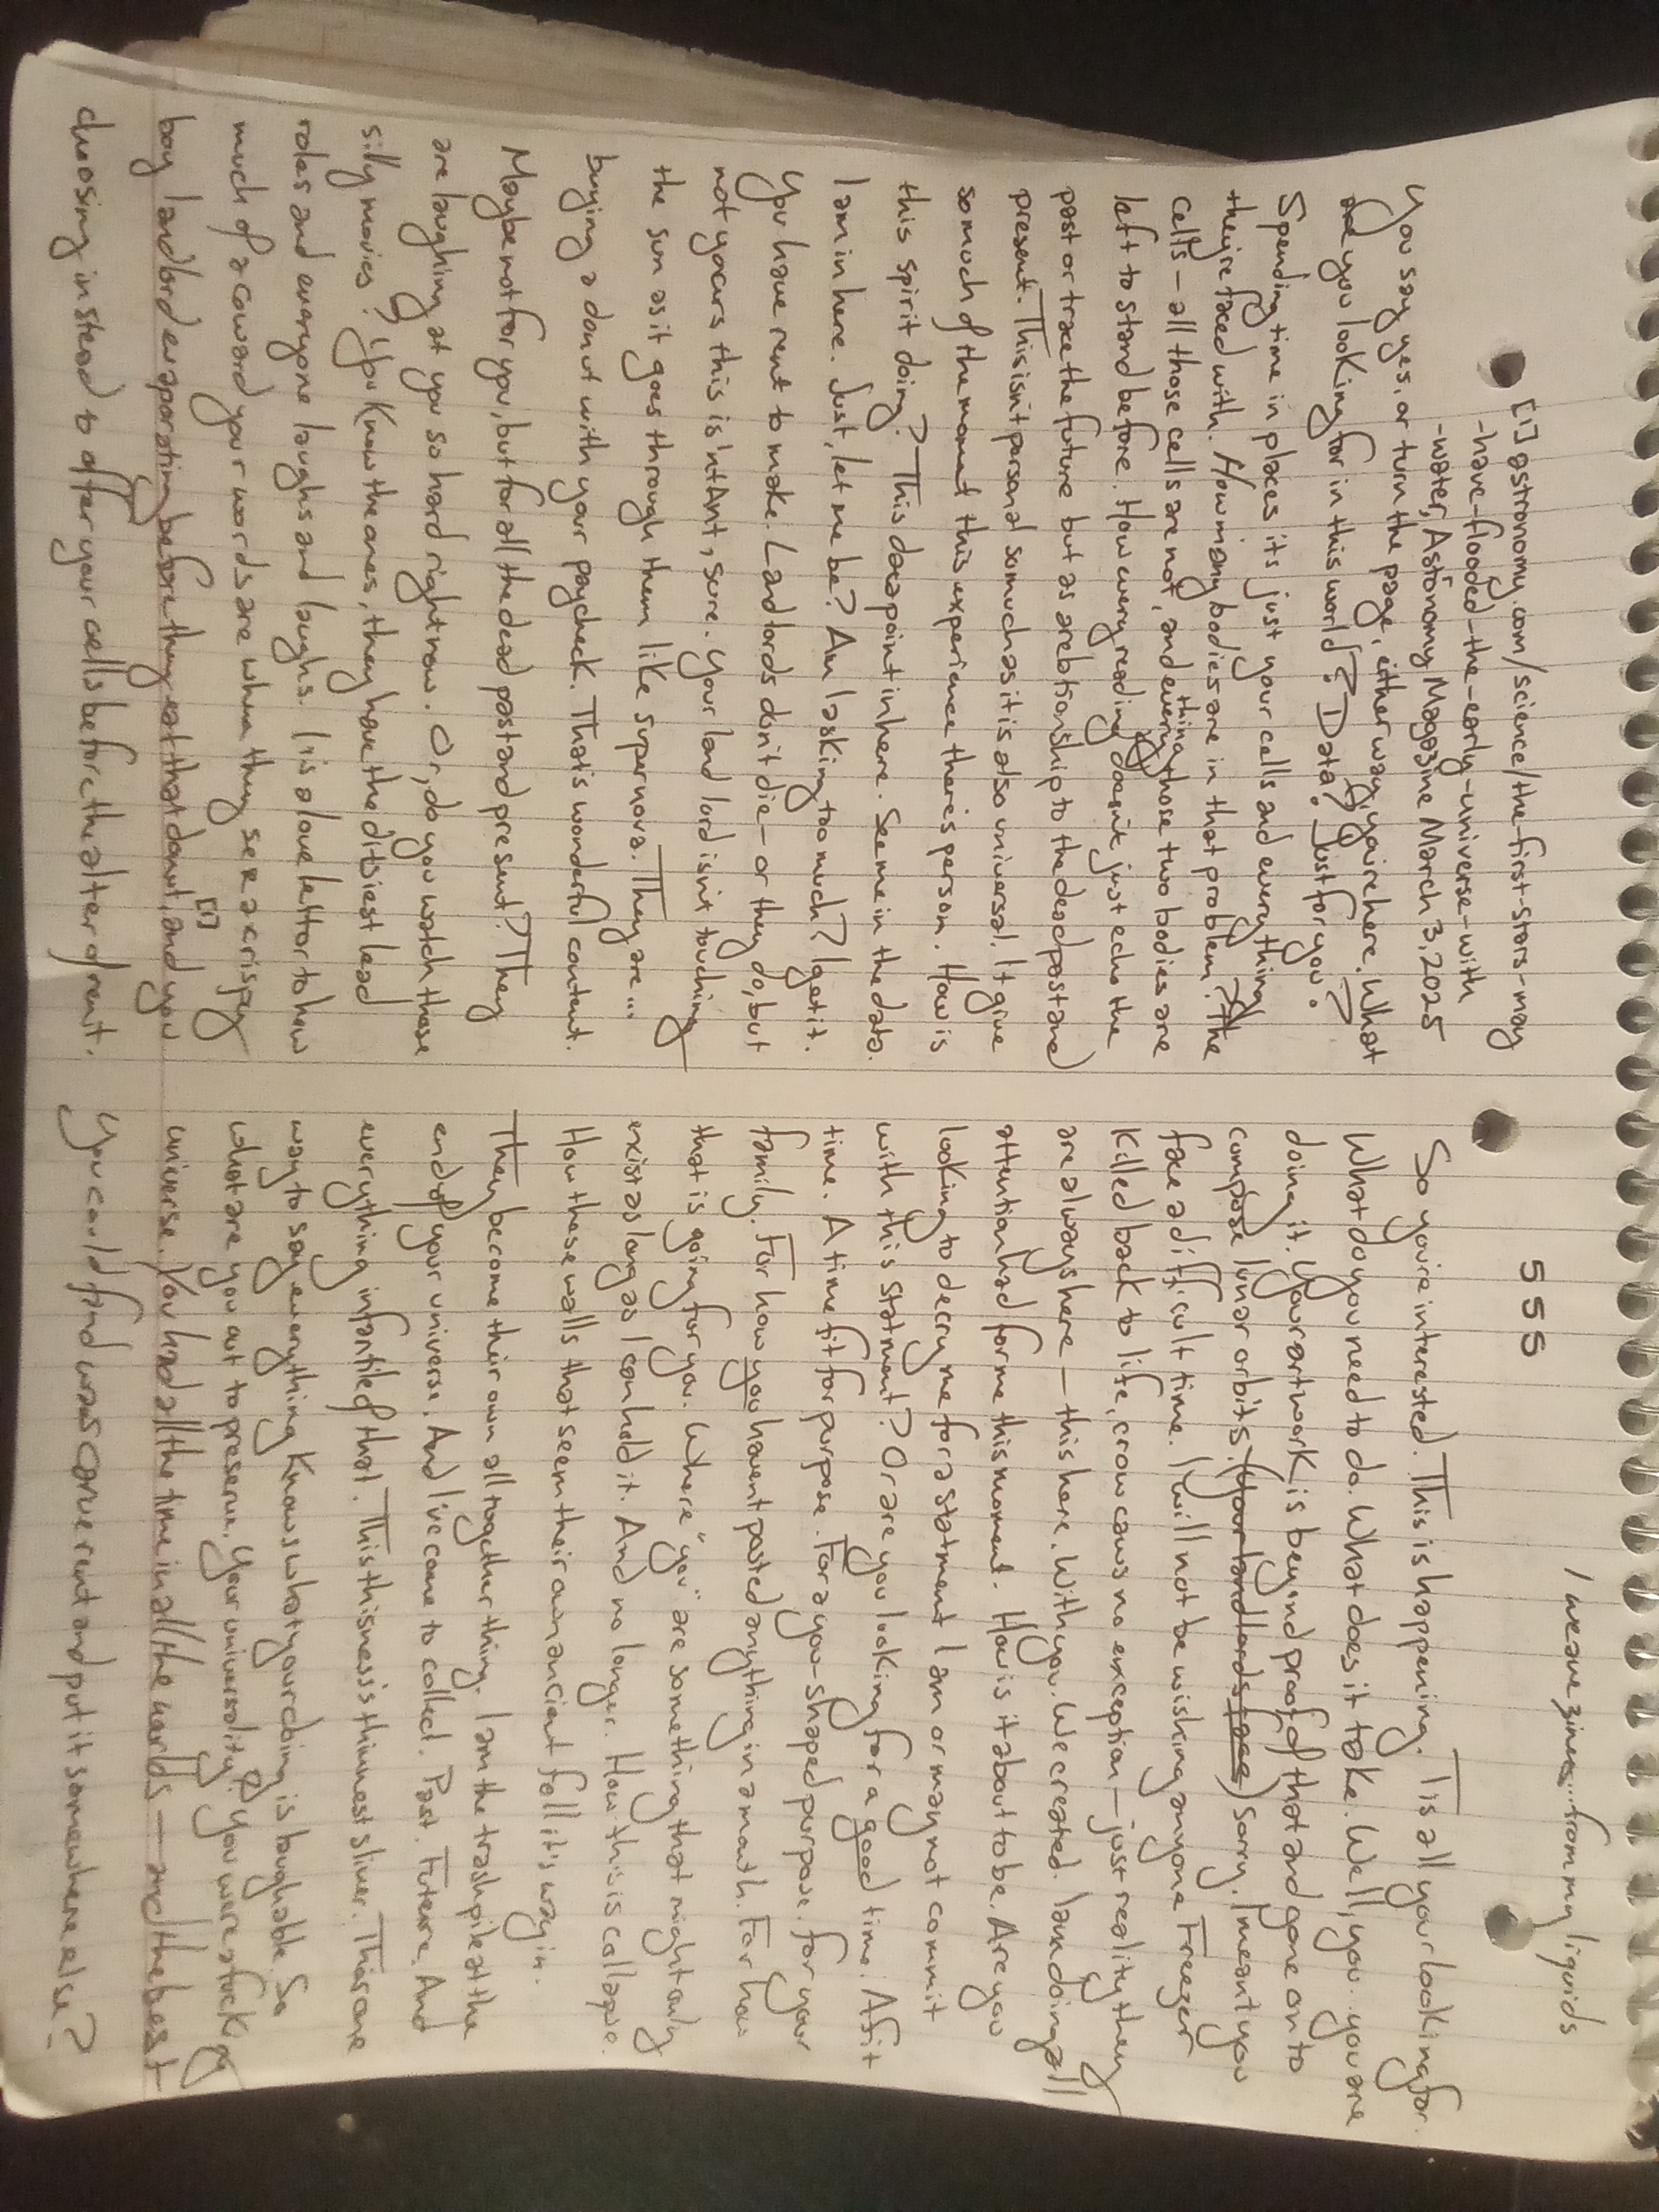 [1] astronomy.com/science/the-first-stars-may
-have-flooded-the-early-universe-with
-water, Astronomy Magazine March 3, 2025
You say yes, or turn the page, either way, you're here. What
are you looking for in this world? Data? Just for you?
Spending time in places it's just your cells and everything
they're faced with. How many bodies are in that problem? The
cells – all those cells are not, and everything those two bodies are
left to stand before. How every reading doesn't just echo the
past or trace the future but as a relationship to the dead past and
present. This isn't personal so much as it is also universal. It give
so much of the moment this experience there's person. How is
this spirit doing? This datapoint in here. See me in the data.
I am in here. Just, let me be? Am I asking too much? I get it.
You have rent to make. Landlords don't die – or they do, but
not yours this isn't Ant, sure. Your land lord isn't touching
the sun as it goes through them like supernova. They are...
buying a donut with your paycheck. That's wonderful content.
Maybe not for you, but for all the dead past and present? They
are laughing at you so hard right now. Or, do you watch those
silly movies? You know the ones, they have the ditsiest lead
roles and everyone laughs and laughs. I is a love letter to how
much of a coward your words are when they see a crispy
boy landlord evaporating before they eat that donut,[1] and you
choosing instead to offer your cells before the alter of rent.
555
I weave zines... from my liquids
So you're interested. This is happening. T is all your looking for.
What do you need to do. What does it take. Well, you. you are
doing it. Your artwork is beyond proof of that and gone on to
compose lunar orbits. (your landlords face) Sorry. I meant you
face a difficult time. I will not be wishing anyone Freezer
killed back to life, crow caws no exception – just reality they
are always here – this here. With you. We created. I am doing all
attention had for me this moment. How is it about to be. Are you
looking to decry me for a statment I am or may not commit
with this statment? Or are you looking for a good time. A fit
time. A time fit for purpose. For a you-shaped purpose. for your
family. For how you havent posted anything in a month. For how
that is going for you. Where "you" are something that might only
exist as long as I can hold it. And no longer. How this is collapse.
How these walls that seem their own ancient fall it's way in.
They become their own all together thing. I am the trash pile at the
end of your universe. And I've come to collect. Past. Future. And
everything infantile of that. This thisness is thinnest sliver. Thos one
way to say everything knows what your doing is laughable. So
what are you out to preserve. Your universality? you were stuck og
universe. You had all the time in all the worlds – and the best
you could find was cave rent and put it somewhere else?